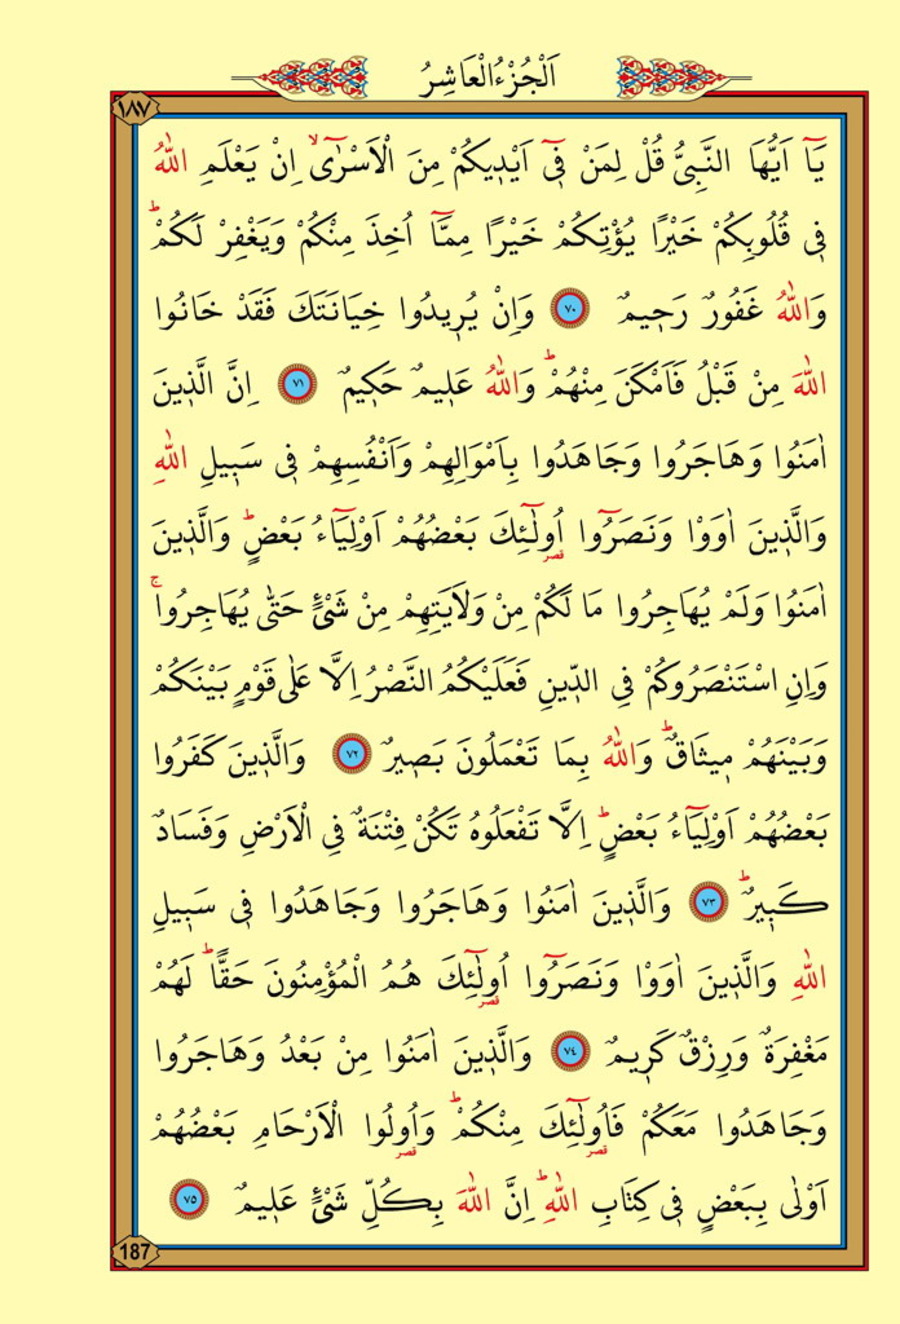 اَلْجُزْءُ الْعَاشِرُ
١٨٧
يَٓا اَيُّهَا النَّبِيُّ قُلْ لِمَنْ ف۪ٓي اَيْد۪يكُمْ مِنَ الْاَسْرٰٓىۙ اِنْ يَعْلَمِ اللّٰهُ
ف۪ي قُلُوبِكُمْ خَيْرًا يُؤْتِكُمْ خَيْرًا مِمَّٓا اُخِذَ مِنْكُمْ وَيَغْفِرْ لَكُمْۜ
وَاللّٰهُ غَفُورٌ رَح۪يمٌ ﴿٧٠﴾ وَاِنْ يُر۪يدُوا خِيَانَتَكَ فَقَدْ خَانُوا
اللّٰهَ مِنْ قَبْلُ فَاَمْكَنَ مِنْهُمْۜ وَاللّٰهُ عَل۪يمٌ حَك۪يمٌ ﴿٧١﴾ اِنَّ الَّذ۪ينَ
اٰمَنُوا وَهَاجَرُوا وَجَاهَدُوا بِاَمْوَالِهِمْ وَاَنْفُسِهِمْ ف۪ي سَب۪يلِ اللّٰهِ
وَالَّذ۪ينَ اٰوَوْا وَنَصَرُٓوا اُو۬لٰٓئِكَ بَعْضُهُمْ اَوْلِيَٓاءُ بَعْضٍۜ وَالَّذ۪ينَ
اٰمَنُوا وَلَمْ يُهَاجِرُوا مَا لَكُمْ مِنْ وَلَايَتِهِمْ مِنْ شَيْءٍ حَتّٰى يُهَاجِرُواۚ
وَاِنِ اسْتَنْصَرُوكُمْ فِي الدّ۪ينِ فَعَلَيْكُمُ النَّصْرُ اِلَّا عَلٰى قَوْمٍ بَيْنَكُمْ
وَبَيْنَهُمْ م۪يثَاقٌۜ وَاللّٰهُ بِمَا تَعْمَلُونَ بَص۪يرٌ ﴿٧٢﴾ وَالَّذ۪ينَ كَفَرُوا
بَعْضُهُمْ اَوْلِيَٓاءُ بَعْضٍۜ اِلَّا تَفْعَلُوهُ تَكُنْ فِتْنَةٌ فِي الْاَرْضِ وَفَسَادٌ
كَب۪يرٌۜ ﴿٧٣﴾ وَالَّذ۪ينَ اٰمَنُوا وَهَاجَرُوا وَجَاهَدُوا ف۪ي سَب۪يلِ
اللّٰهِ وَالَّذ۪ينَ اٰوَوْا وَنَصَرُٓوا اُو۬لٰٓئِكَ هُمُ الْمُؤْمِنُونَ حَقًّاۜ لَهُمْ
مَغْفِرَةٌ وَرِزْقٌ كَر۪يمٌ ﴿٧٤﴾ وَالَّذ۪ينَ اٰمَنُوا مِنْ بَعْدُ وَهَاجَرُوا
وَجَاهَدُوا مَعَكُمْ فَاُو۬لٰٓئِكَ مِنْكُمْۜ وَاُو۬لُوا الْاَرْحَامِ بَعْضُهُمْ
اَوْلٰى بِبَعْضٍ ف۪ي كِتَابِ اللّٰهِۜ اِنَّ اللّٰهَ بِكُلِّ شَيْءٍ عَل۪يمٌ ﴿٧٥﴾
187